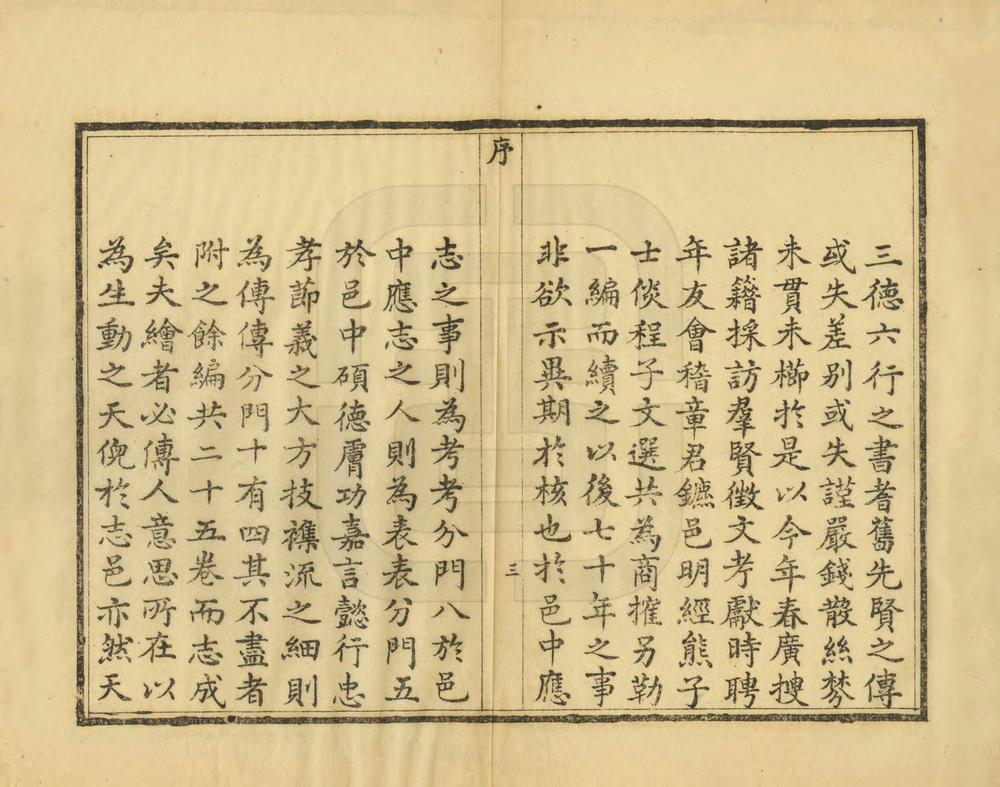 三德六行之書耆舊先賢之傳
或失差别或失謹嚴錢散絲棼
未貫未櫛扵是以今年春廣搜
諸籍採訪羣賢徴文考獻時聘
年友會稽章君鑣邑明經熊子
士倓程子文選共為商搉另勒
一編而續之以後七十年之事
非欲示異期扵核也扵邑中應
序
三
志之事則為考考分門八於邑
中應志之人則為表表分門五
於邑中碩德膚功嘉言懿行忠
孝莭義之大方技襍流之細則
為傳傳分門十有四其不盡者
附之餘編共二十五卷而志成
矣夫繪者必傳人意思所在以
為生動之天倪扵志邑亦然天